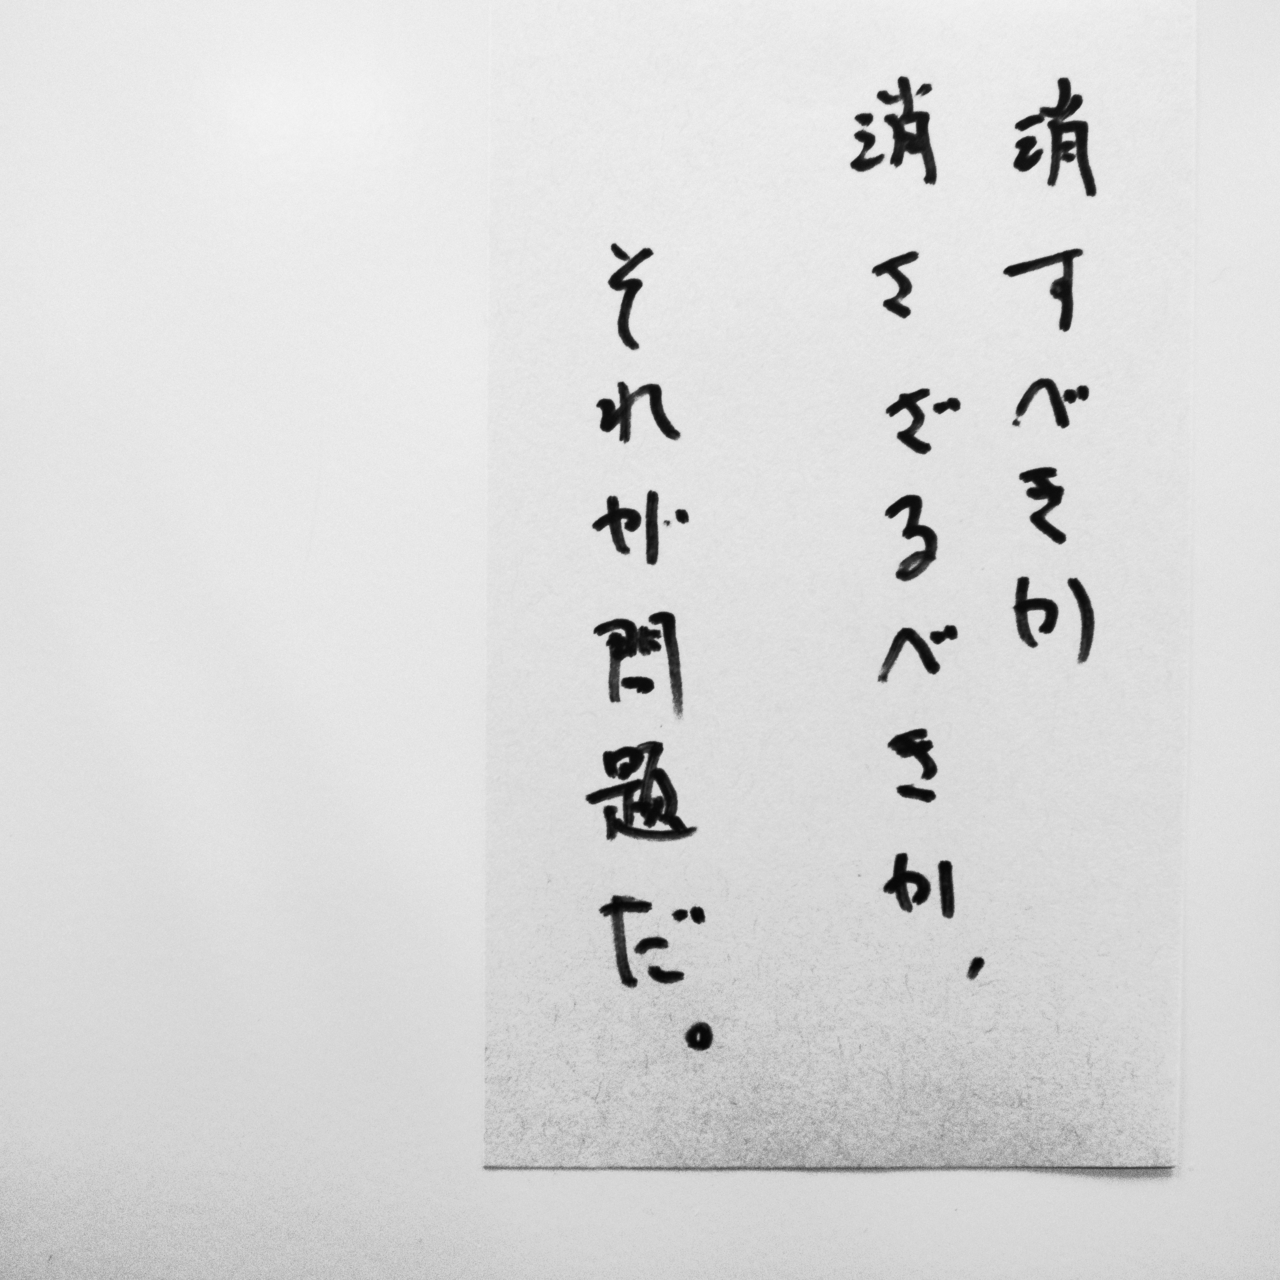 消すべきか
消さざるべきか、
それが問題だ。